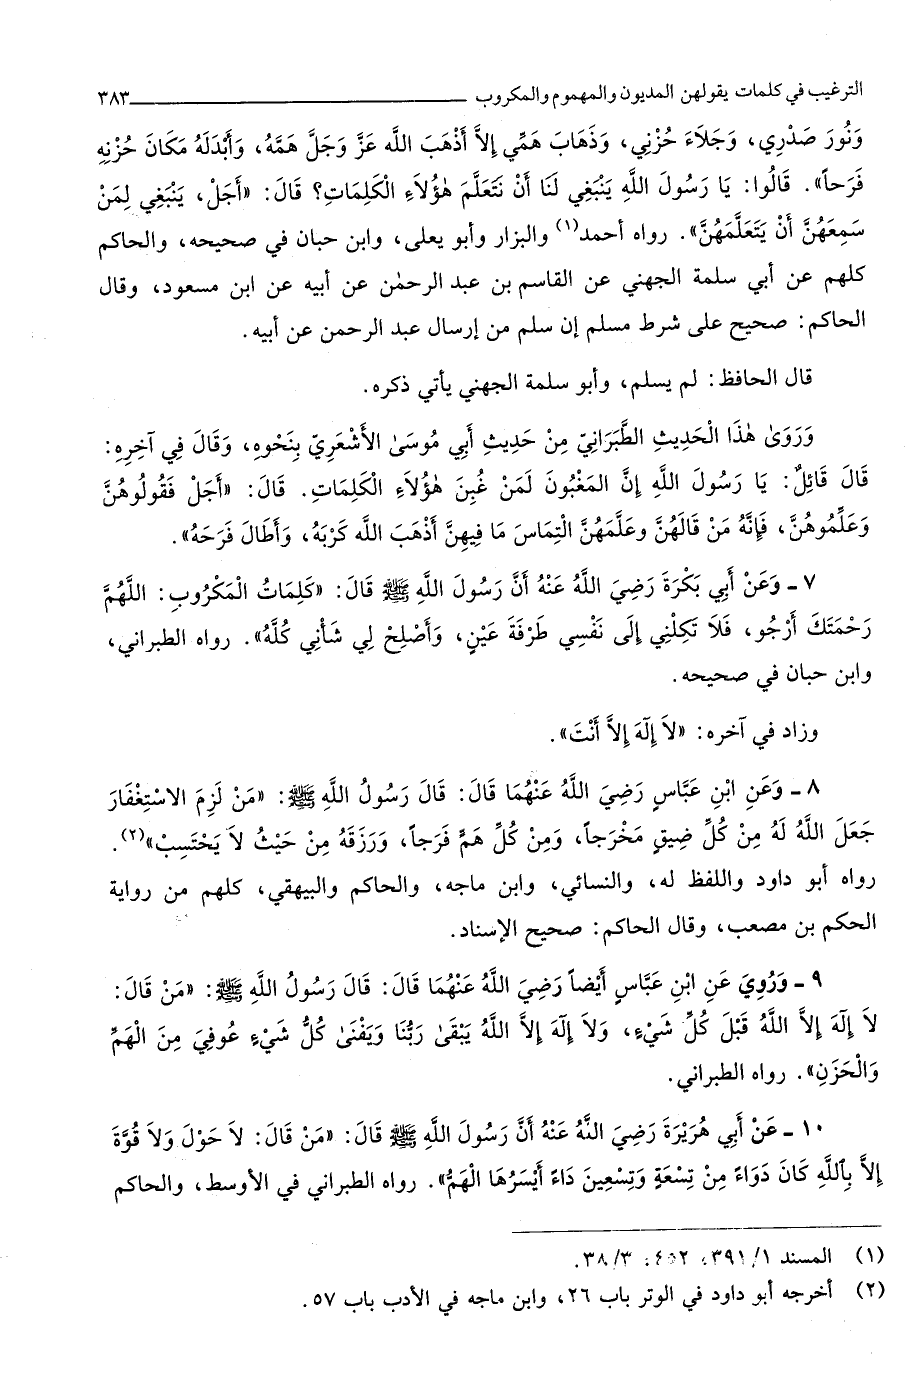 الترغيب في كلمات يقولهن المديون والمهموم والمكروب ــــــــــ ٣٨٣
وَنُورَ صَدْرِي، وَجَلاَءَ حُزْنِي، وَذَهَابَ هَمِّي إِلاَّ أَذْهَبَ الله عَزَّ وَجَلَّ هَمَّهُ، وَأَبْدَلَهُ مَكَانَ حُزْنِهِ
فَرَحاً». قَالُوا: يَا رَسُولَ اللَّهِ يَنْبَغِي لَنَا أَنْ نَتَعَلَّمَ هٰؤُلاَءِ الْكَلِمَاتِ؟ قَالَ: «أَجَلْ، يَنْبَغِي لِمَنْ
سَمِعَهُنَّ أَنْ يَتَعَلَّمَهُنَّ». رواه أحمد(١) والبزار وأبو يعلى، وابن حبان في صحيحه، والحاكم
كلهم عن أبي سلمة الجهني عن القاسم بن عبد الرحمٰن عن أبيه عن ابن مسعود، وقال
الحاكم: صحيح على شرط مسلم إن سلم من إرسال عبد الرحمن عن أبيه.
قال الحافظ: لم يسلم، وأبو سلمة الجهني يأتي ذكره.
وَرَوَىٰ هٰذَا الْحَدِيثَ الطَّبَرَانِيّ مِنْ حَدِيثِ أَبِي مُوسَىٰ الأَشْعَرِيِّ بِنَحْوِهِ، وَقَالَ فِي آخِرِهِ:
قَالَ قَائِلٌ: يَا رَسُولَ اللَّهِ إِنَّ المَغْبُونَ لَمَنْ غُبِنَ هٰؤُلاَءِ الْكَلِمَاتِ. قَالَ: «أَجَلْ فَقُولُوهُنَّ
وَعَلِّمُوهُنَّ، فَإِنَّهُ مَنْ قَالَهُنَّ وَعَلَّمَهُنَّ الْتِمَاسَ مَا فِيهِنَّ أَذْهَبَ الله كَرْبَهُ، وَأَطَالَ فَرَحَهُ».
٧ ـ وَعَنْ أَبِي بَكْرَةَ رَضِيَ اللَّهُ عَنْهُ أَنَّ رَسُولَ اللَّهِ ﷺ قَالَ: «كَلِمَاتُ الْمَكْرُوبِ: اللَّهُمَّ
رَحْمَتَكَ أَرْجُو، فَلاَ تَكِلْنِي إِلَى نَفْسِي طَرْفَةَ عَيْنٍ، وَأَصْلِحْ لِي شَأْنِي كُلَّهُ». رواه الطبراني،
وابن حبان في صحيحه.
وزاد في آخره: «لاَ إِلٰهَ إِلاَّ أَنْتَ».
٨ ـ وَعَنِ ابْنِ عَبَّاسٍ رَضِيَ اللَّهُ عَنْهُمَا قَالَ: قَالَ رَسُولُ اللَّهِ ﷺ: «مَنْ لَزِمَ الاسْتِغْفَارَ
جَعَلَ اللَّهُ لَهُ مِنْ كُلِّ ضِيقٍ مَخْرَجاً، وَمِنْ كُلِّ هَمٍّ فَرَجاً، وَرَزَقَهُ مِنْ حَيْثُ لاَ يَحْتَسِبْ»(٢).
رواه أبو داود واللفظ له، والنسائي، وابن ماجه، والحاكم والبيهقي، كلهم من رواية
الحكم بن مصعب، وقال الحاكم: صحيح الإسناد.
٩ ـ وَرُوِيَ عَنِ ابْنِ عَبَّاسٍ أَيْضاً رَضِيَ اللَّهُ عَنْهُمَا قَالَ: قَالَ رَسُولُ اللَّهِ ﷺ: «مَنْ قَالَ:
لاَ إِلٰهَ إِلاَّ اللَّهُ قَبْلَ كُلِّ شَيْءٍ، وَلاَ إِلٰهَ إِلاَّ اللَّهُ يَبْقَىٰ رَبُّنَا وَيَفْنَىٰ كُلُّ شَيْءٍ عُوفِيَ مِنَ الْهَمِّ
وَالْحَزَنِ». رواه الطبراني.
١٠ ـ عَنْ أَبِي هُرَيْرَةَ رَضِيَ اللَّهُ عَنْهُ أَنَّ رَسُولَ اللَّهِ ﷺ قَالَ: «مَنْ قَالَ: لاَ حَوْلَ وَلاَ قُوَّةَ
إِلاَّ بِٱللَّهِ كَانَ دَوَاءً مِنْ تِسْعَةٍ وَتِسْعِينَ دَاءً أَيْسَرُهَا الْهَمُّ». رواه الطبراني في الأوسط، والحاكم
(١) المسند ١/ ٣٩١، ٣/ ٣٨.
(٢) أخرجه أبو داود في الوتر باب ٢٦، وابن ماجه في الأدب باب ٥٧.